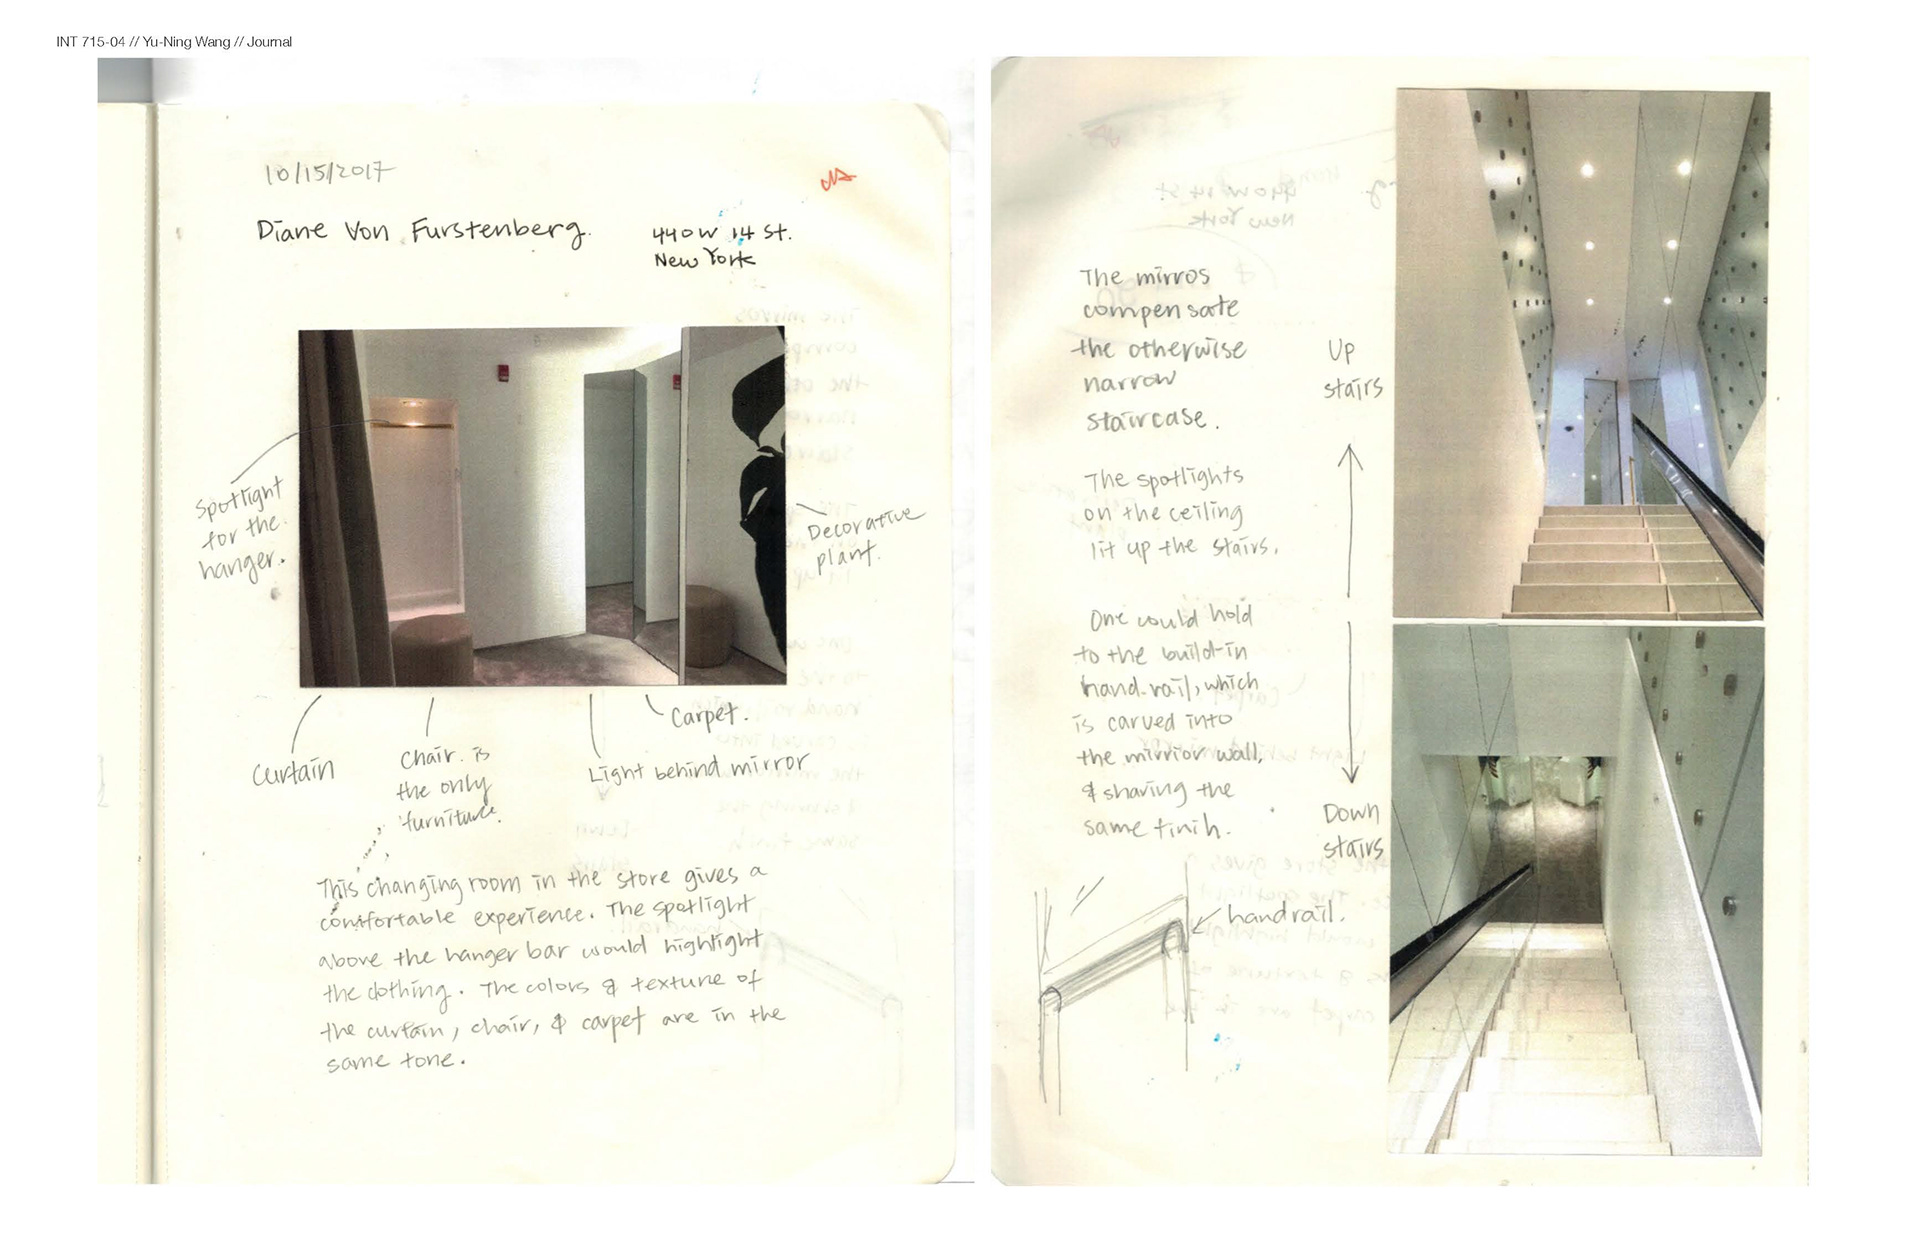 INT 715-04 // Yu-Ning Wang // Journal
10/15/2017
Diane Von Furstenberg.
440 W 14 St.
New York
Spotlight
for the
hanger.
Decorative
plant.
Curtain
Chair. is
the only
furniture.
Light behind mirror
Carpet.
This changing room in the store gives a
comfortable experience. The spotlight
above the hanger bar would highlight
the clothing. The colors & texture of
the curtain, chair, & carpet are in the
same tone.
The mirros
compensate
the otherwise
narrow
staircase.
The spotlights
on the ceiling
lit up the stairs.
One could hold
to the build-in
hand-rail, which
is carved into
the mirrior wall,
& sharing the
same finih.
Up
stairs
Down
stairs
handrail.